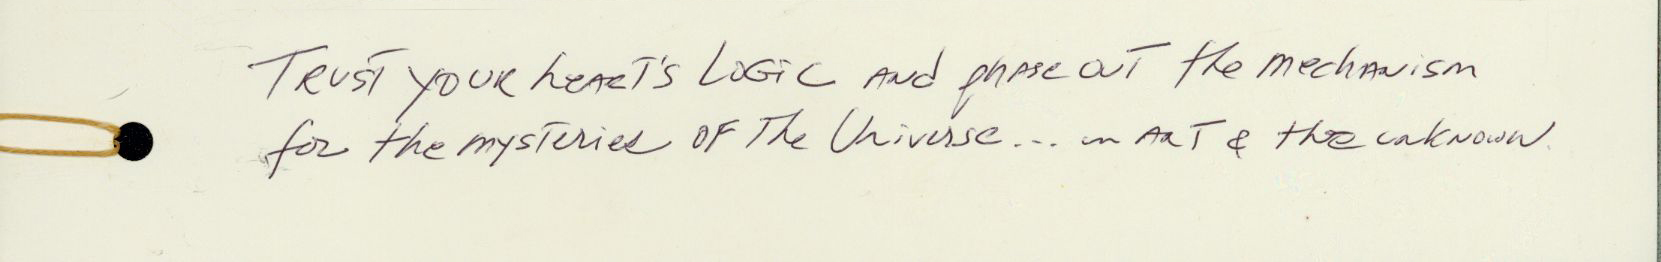 Trust your heart's Logic and phase out the mechanism
for the mysteries of The Universe... in Art & the unknown.